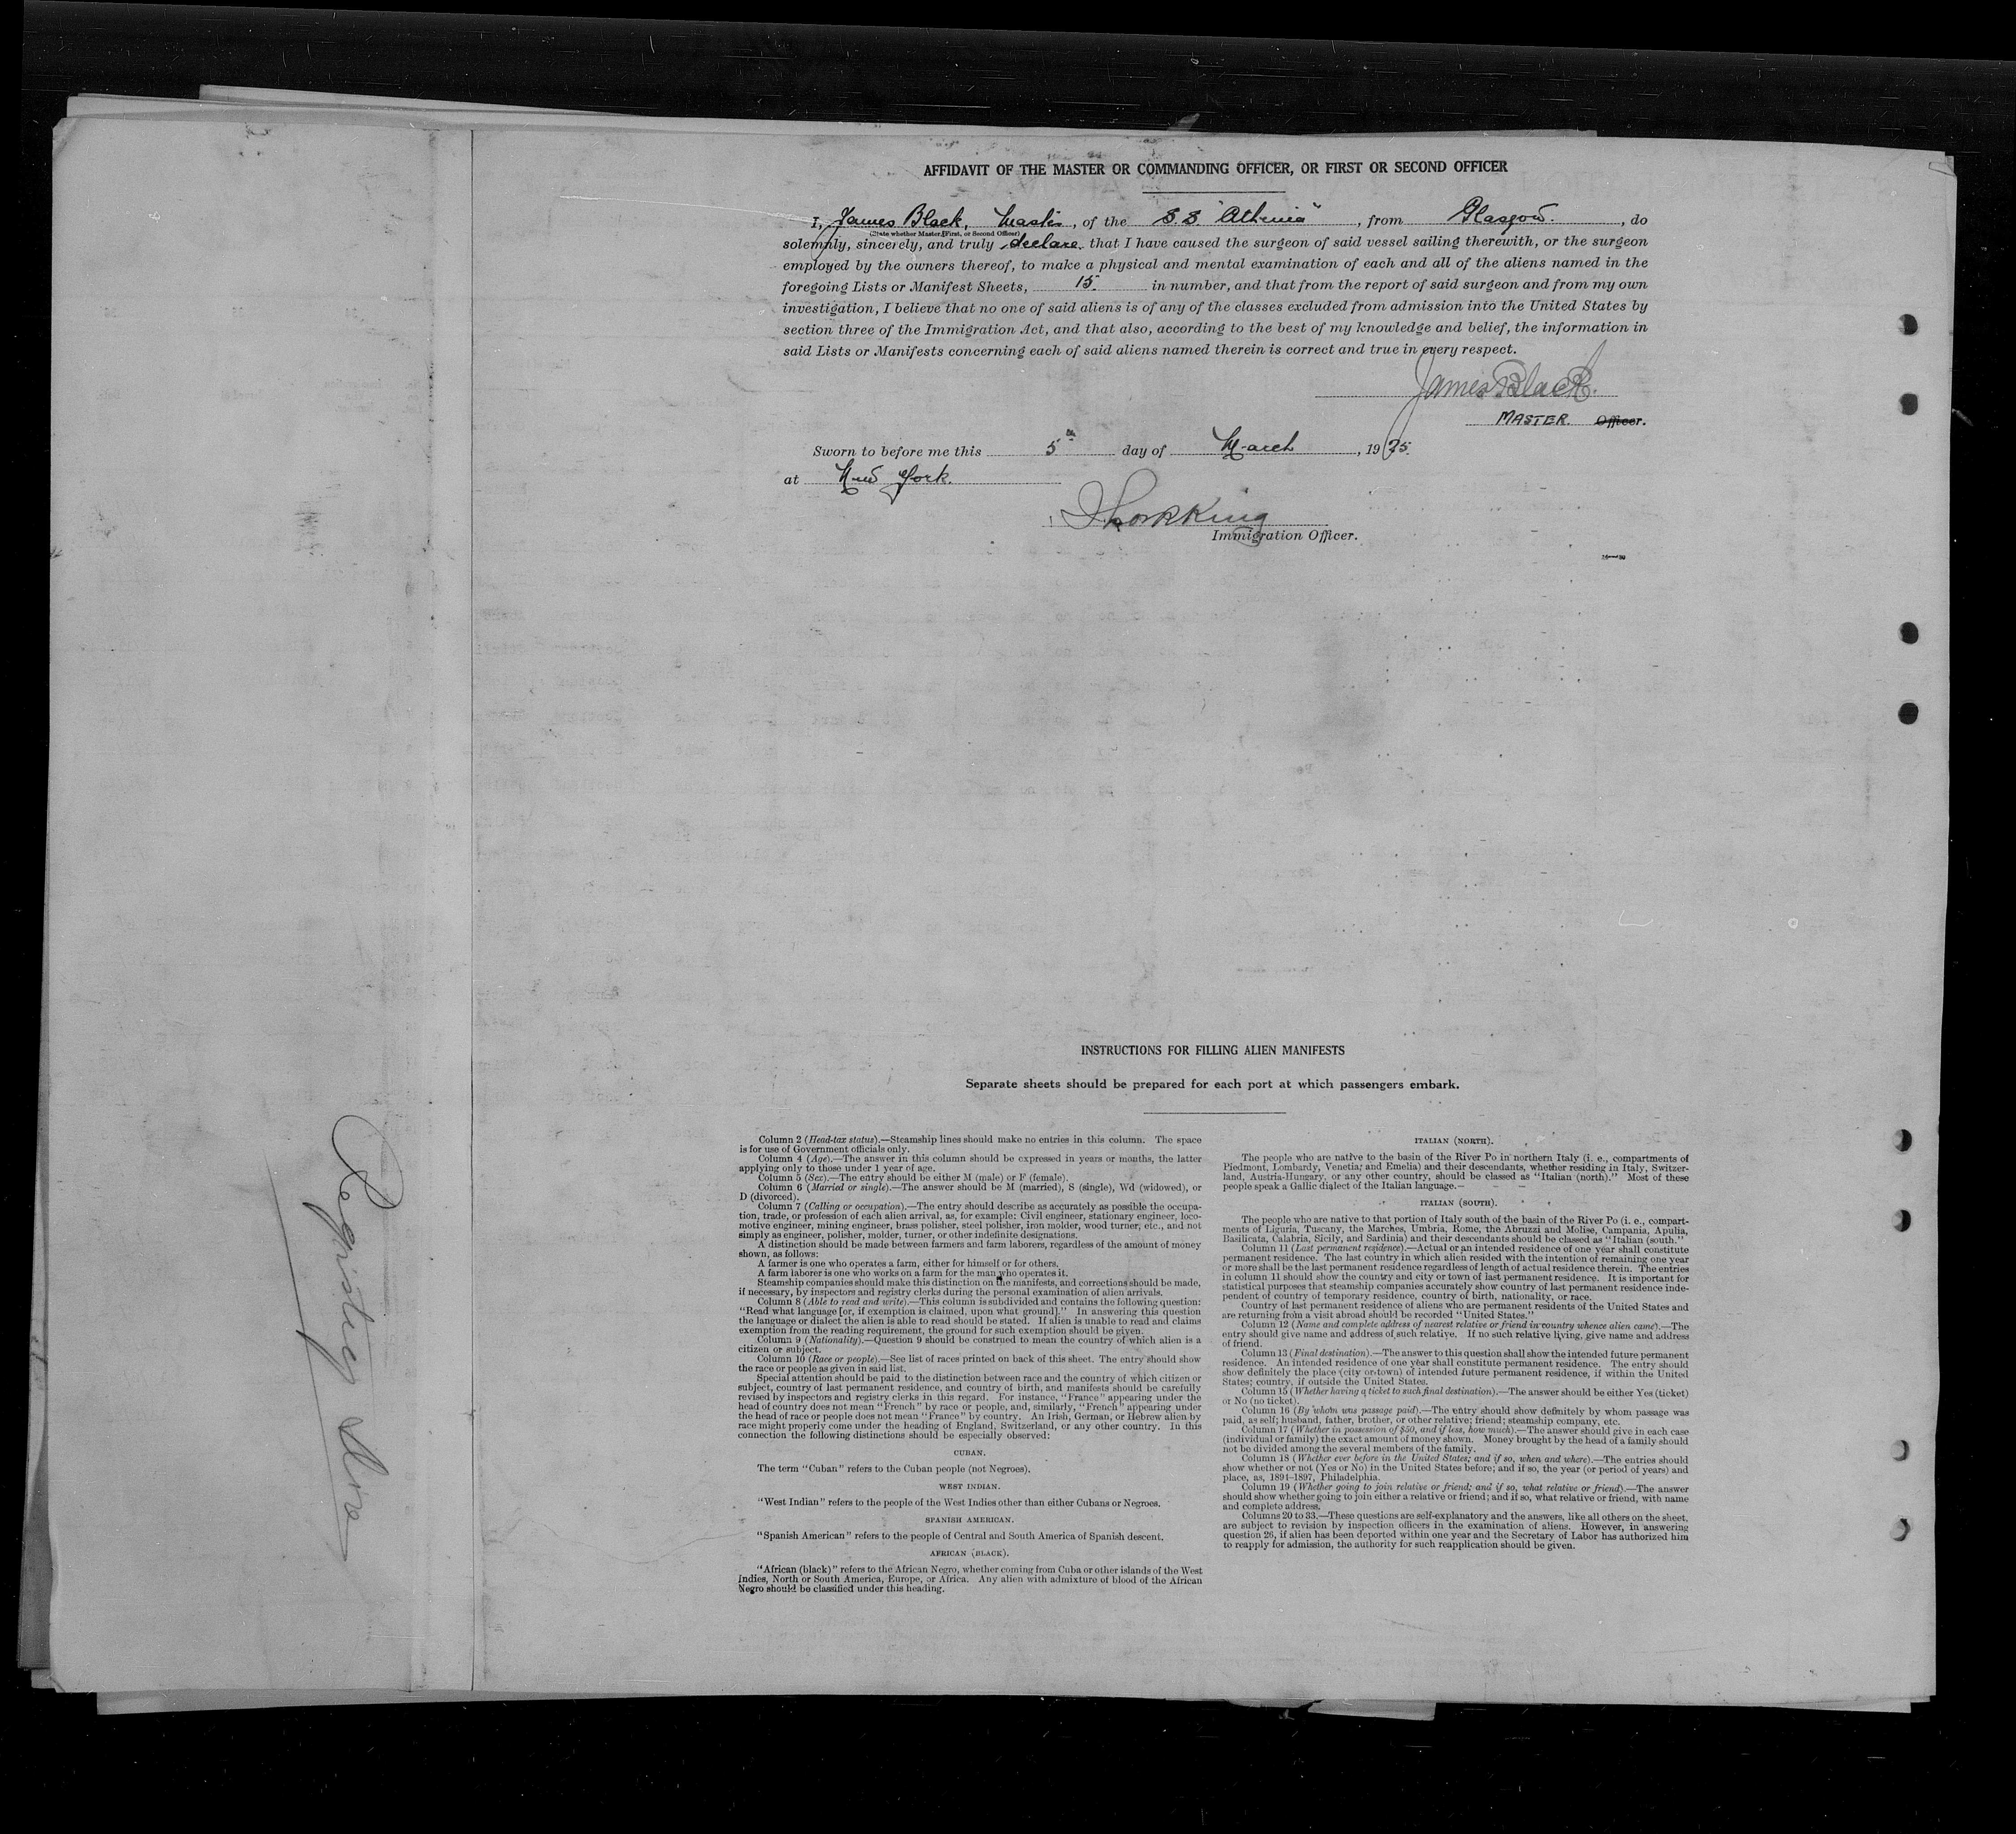 AFFIDAVIT OF THE MASTER OR COMMANDING OFFICER, OR FIRST OR SECOND OFFICER
I, James Black, Master, of the S.S. "Athenia", from Glasgow., do
(State whether Master, First, or Second Officer)
solemnly, sincerely, and truly declare that I have caused the surgeon of said vessel sailing therewith, or the surgeon
employed by the owners thereof, to make a physical and mental examination of each and all of the aliens named in the
foregoing Lists or Manifest Sheets, 15 in number, and that from the report of said surgeon and from my own
investigation, I believe that no one of said aliens is of any of the classes excluded from admission into the United States by
section three of the Immigration Act, and that also, according to the best of my knowledge and belief, the information in
said Lists or Manifests concerning each of said aliens named therein is correct and true in every respect.
James Black.
MASTER. Officer.
Sworn to before me this 5th day of March, 1925.
at New York.
Immigration Officer.
Registry Div
INSTRUCTIONS FOR FILLING ALIEN MANIFESTS
Separate sheets should be prepared for each port at which passengers embark.
Column 2 (Head-tax status).—Steamship lines should make no entries in this column. The space
is for use of Government officials only.
Column 4 (Age).—The answer in this column should be expressed in years or months, the latter
applying only to those under 1 year of age.
Column 5 (Sex).—The entry should be either M (male) or F (female).
Column 6 (Married or single).—The answer should be M (married), S (single), Wd (widowed), or
D (divorced).
Column 7 (Calling or occupation).—The entry should describe as accurately as possible the occupa-
tion, trade, or profession of each alien arrival, as, for example: Civil engineer, stationary engineer, loco-
motive engineer, mining engineer, brass polisher, steel polisher, iron molder, wood turner, etc., and not
simply as engineer, polisher, molder, turner, or other indefinite designations.
A distinction should be made between farmers and farm laborers, regardless of the amount of money
shown, as follows:
A farmer is one who operates a farm, either for himself or for others.
A farm laborer is one who works on a farm for the man who operates it.
Steamship companies should make this distinction on the manifests, and corrections should be made,
if necessary, by inspectors and registry clerks during the personal examination of alien arrivals.
Column 8 (Able to read and write).—This column is subdivided and contains the following question:
"Read what language [or, if exemption is claimed, upon what ground]." In answering this question
the language or dialect the alien is able to read should be stated. If alien is unable to read and claims
exemption from the reading requirement, the ground for such exemption should be given.
Column 9 (Nationality).—Question 9 should be construed to mean the country of which alien is a
citizen or subject.
Column 10 (Race or people).—See list of races printed on back of this sheet. The entry should show
the race or people as given in said list.
Special attention should be paid to the distinction between race and the country of which citizen or
subject, country of last permanent residence, and country of birth, and manifests should be carefully
revised by inspectors and registry clerks in this regard. For instance, "France" appearing under the
head of country does not mean "French" by race or people, and, similarly, "French" appearing under
the head of race or people does not mean "France" by country. An Irish, German, or Hebrew alien by
race might properly come under the heading of England, Switzerland, or any other country. In this
connection the following distinctions should be especially observed:
CUBAN.
The term "Cuban" refers to the Cuban people (not Negroes).
WEST INDIAN.
"West Indian" refers to the people of the West Indies other than either Cubans or Negroes.
SPANISH AMERICAN.
"Spanish American" refers to the people of Central and South America of Spanish descent.
AFRICAN (BLACK).
"African (black)" refers to the African Negro, whether coming from Cuba or other islands of the West
Indies, North or South America, Europe, or Africa. Any alien with admixture of blood of the African
Negro should be classified under this heading.
ITALIAN (NORTH).
The people who are native to the basin of the River Po in northern Italy (i. e., compartments of
Piedmont, Lombardy, Venetia, and Emelia) and their descendants, whether residing in Italy, Switzer-
land, Austria-Hungary, or any other country, should be classed as "Italian (north)." Most of these
people speak a Gallic dialect of the Italian language.
ITALIAN (SOUTH).
The people who are native to that portion of Italy south of the basin of the River Po (i. e., compart-
ments of Liguria, Tuscany, the Marches, Umbria, Rome, the Abruzzi and Molise, Campania, Apulia,
Basilicata, Calabria, Sicily, and Sardinia) and their descendants should be classed as "Italian (south."
Column 11 (Last permanent residence).—Actual or an intended residence of one year shall constitute
permanent residence. The last country in which alien resided with the intention of remaining one year
or more shall be the last permanent residence regardless of length of actual residence therein. The entries
in column 11 should show the country and city or town of last permanent residence. It is important for
statistical purposes that steamship companies accurately show country of last permanent residence inde-
pendent of country of temporary residence, country of birth, nationality, or race.
Country of last permanent residence of aliens who are permanent residents of the United States and
are returning from a visit abroad should be recorded "United States."
Column 12 (Name and complete address of nearest relative or friend in country whence alien came).—The
entry should give name and address of such relative. If no such relative living, give name and address
of friend.
Column 13 (Final destination).—The answer to this question shall show the intended future permanent
residence. An intended residence of one year shall constitute permanent residence. The entry should
show definitely the place (city or town) of intended future permanent residence, if within the United
States; country, if outside the United States.
Column 15 (Whether having a ticket to such final destination).—The answer should be either Yes (ticket)
or No (no ticket).
Column 16 (By whom was passage paid).—The entry should show definitely by whom passage was
paid, as self; husband, father, brother, or other relative; friend; steamship company, etc.
Column 17 (Whether in possession of $50, and if less, how much).—The answer should give in each case
(individual or family) the exact amount of money shown. Money brought by the head of a family should
not be divided among the several members of the family.
Column 18 (Whether ever before in the United States; and if so, when and where).—The entries should
show whether or not (Yes or No) in the United States before; and if so, the year (or period of years) and
place, as, 1894-1897, Philadelphia.
Column 19 (Whether going to join relative or friend; and if so, what relative or friend).—The answer
should show whether going to join either a relative or friend; and if so, what relative or friend, with name
and complete address.
Columns 20 to 33.—These questions are self-explanatory and the answers, like all others on the sheet,
are subject to revision by inspection officers in the examination of aliens. However, in answering
question 26, if alien has been deported within one year and the Secretary of Labor has authorized him
to reapply for admission, the authority for such reapplication should be given.